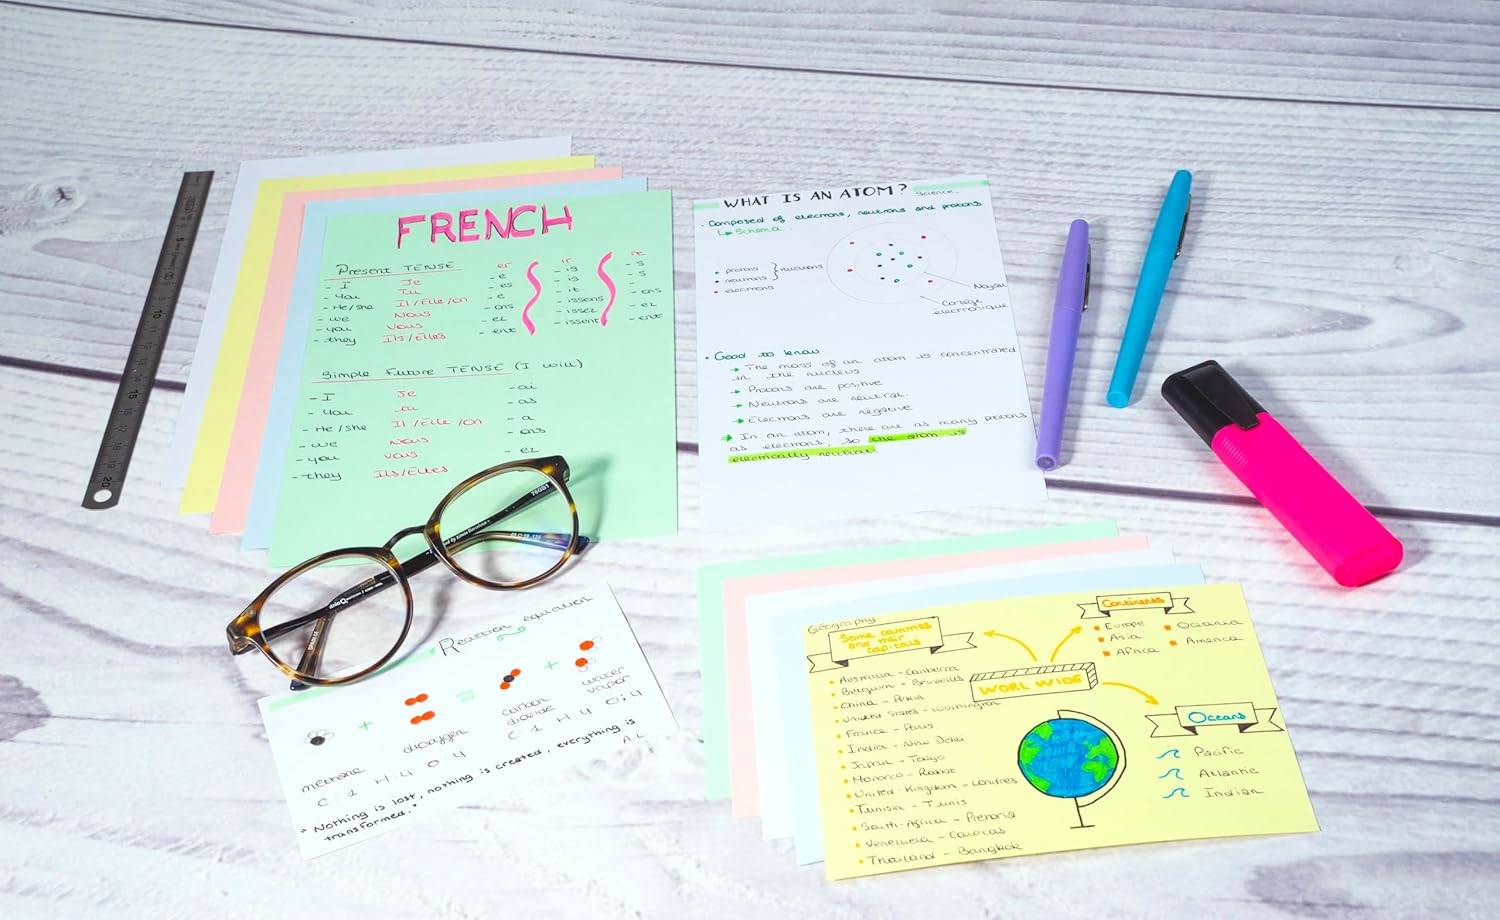 FRENCH
Present TENSE
- I Je
- You Tu
- He/she Il/Elle/on
- we Nous
- you Vous
- they Ils/Elles
er
- e
- es
- e
- ons
- ez
- ent
ir
- is
- is
- it
- issons
- issez
- issent
re
- s
- s
-
- ons
- ez
- ent
Simple Future TENSE (I will)
- I Je - ai
- you tu - as
- He/she Il/Elle/on - a
- we Nous - ons
- you vous - ez
- they Ils/Elles
WHAT IS AN ATOM?
Science
. Composed of electrons, neutrons and protons
Schema
protons
neutrons
electrons
nucleons
Noyau
Cortège
électronique
. Good to know
The mass of an atom is concentrated
in the nucleus
Protons are positive
Neutrons are neutral.
Electrons are negative
In an atom, there are as many protons
as electrons, so the atom is
electrically neutral.
Reaction equation
+ = +
methane
dioxygen
carbon
dioxide
water
vapor
C: 1 H: 4 O: 4
C: 1 H: 4 O: 4
" Nothing is lost, nothing is created, everything is
transformed."
A.L
Géography
Some countries
and their
capitals
Australia - Canberra
Belgium - Bruxelles
China - Pékin
United States - Washington
France - Paris
India - New Delhi
Japan - Tokyo
Morocco - Rabat
United-Kingdom - Londres
Tunisia - Tunis
South-Africa - Pretoria
Venezuela - Caracas
Thailand - Bangkok
WORLWIDE
Continents
Europe
Asia
Africa
Oceania
America
Oceans
Pacific
Atlantic
Indian
5
10
15
20